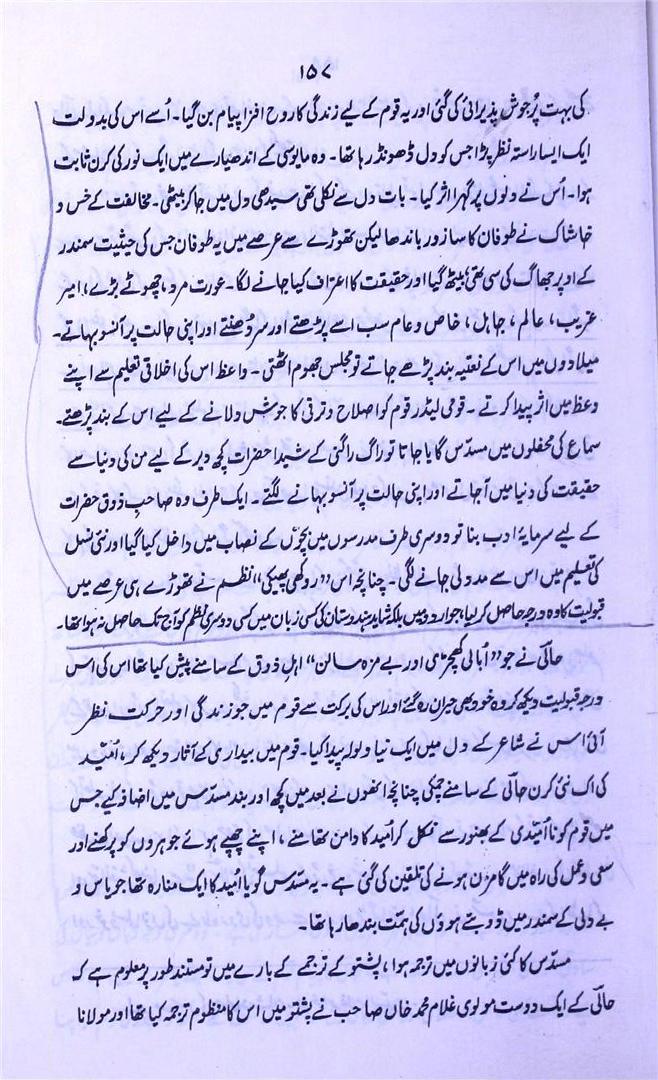 ۱۵۷
کی بہت پُرجوش پذیرائی کی گئی اور یہ قوم کے لیے زندگی کا روح افزا پیام بن گیا۔ اُسے اس کی بدولت
ایک ایسا راستہ نظر پڑا جس کو دل ڈھونڈ رہا تھا۔ وہ مایوسی کے اندھیارے میں ایک نور کی کرن ثابت
ہوا۔ اُس نے دلوں پر گہرا اثر کیا۔ بات دل سے نکلی تھی سیدھی دل میں جا کر بیٹھی۔ مخالفت کے خس و
خاشاک نے طوفان کا سا زور باندھا لیکن تھوڑے سے عرصے میں یہ طوفان جس کی حیثیت سمندر
کے اوپر جھاگ کی سی تھی؛ بیٹھ گیا اور حقیقت کا اعتراف کیا جانے لگا۔ عورت مرد، چھوٹے بڑے، امیر
غریب، عالم، جاہل، خاص و عام سب اسے پڑھتے اور سر دُھنتے اور اپنی حالت پر آنسو بہاتے۔
میلادوں میں اس کے نعتیہ بند پڑھے جاتے تو مجلس جھوم اٹھتی۔ واعظ اس کی اخلاقی تعلیم سے اپنے
وعظ میں اثر پیدا کرتے۔ قومی لیڈر قوم کو اصلاح و ترقی کا جوش دلانے کے لیے اس کے بند پڑھتے۔
سماع کی محفلوں میں مسدّس گایا جاتا تو راگ راگنی کے شیدا حضرات کچھ دیر کے لیے من کی دنیا سے
حقیقت کی دنیا میں آجاتے اور اپنی حالت پر آنسو بہانے لگتے۔ ایک طرف وہ صاحبِ ذوق حضرات
کے لیے سرمایۂ ادب بنا تو دوسری طرف مدرسوں میں بچّوں کے نصاب میں داخل کیا گیا اور نئی نسل
کی تعلیم میں اس سے مدد لی جانے لگی۔ چنانچہ اس ”روکھی پھیکی“ نظم نے تھوڑے ہی عرصے میں
قبولیت کا وہ درجہ حاصل کر لیا، جو اردو میں بلکہ شاید ہندوستان کی کسی زبان میں کسی دوسری نظم کو آج تک حاصل نہ ہوا تھا۔
حالؔی نے جو ”اُبالی کھچڑی اور بے مزہ سالن“ اہلِ ذوق کے سامنے پیش کیا تھا اس کی اس
درجہ قبولیت دیکھ کر وہ خود بھی حیران رہ گئے اور اس کی برکت سے قوم میں جو زندگی اور حرکت نظر
آئی اس نے شاعر کے دل میں ایک نیا ولولہ پیدا کیا۔ قوم میں بیداری کے آثار دیکھ کر، اُمّید
کی اک نئی کرن حالؔی کے سامنے چمکی چنانچہ انھوں نے بعد میں کچھ اور بند مسدّس میں اضافہ کیے جس
میں قوم کو نا اُمیّدی کے بھنور سے نکل کر اُمید کا دامن تھامنے، اپنے چھپے ہوئے جوہروں کو پرکھنے اور
سعی و عمل کی راہ میں گامزن ہونے کی تلقین کی گئی ہے۔ یہ مسّدس گویا اُمید کا ایک منارہ تھا جو یاس و
بے دلی کے سمندر میں ڈوبتے ہوؤں کی ہمّت بندھا رہا تھا۔
مسدّس کا کئی زبانوں میں ترجمہ ہوا، پشتو کے ترجمے کے بارے میں تو مستند طور پر معلوم ہے کہ
حالؔی کے ایک دوست مولوی غلام محمد خاں صاحب نے پشتو میں اس کا منظوم ترجمہ کیا تھا اور مولانا